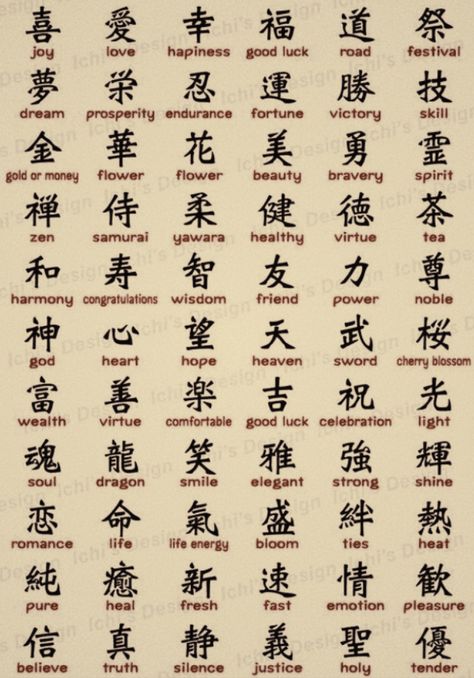 喜 愛 幸 福 道 祭
joy love hapiness good luck road festival
夢 栄 忍 運 勝 技
dream prosperity endurance fortune victory skill
金 華 花 美 勇 霊
gold or money flower flower beauty bravery spirit
禅 侍 柔 健 徳 茶
zen samurai yawara healthy virtue tea
和 寿 智 友 力 尊
harmony congratulations wisdom friend power noble
神 心 望 天 武 桜
god heart hope heaven sword cherry blossom
富 善 楽 吉 祝 光
wealth virtue comfortable good luck celebration light
魂 龍 笑 雅 強 輝
soul dragon smile elegant strong shine
恋 命 氣 盛 絆 熱
romance life life energy bloom ties heat
純 癒 新 速 情 歓
pure heal fresh fast emotion pleasure
信 真 静 義 聖 優
believe truth silence justice holy tender
Ichi's Design